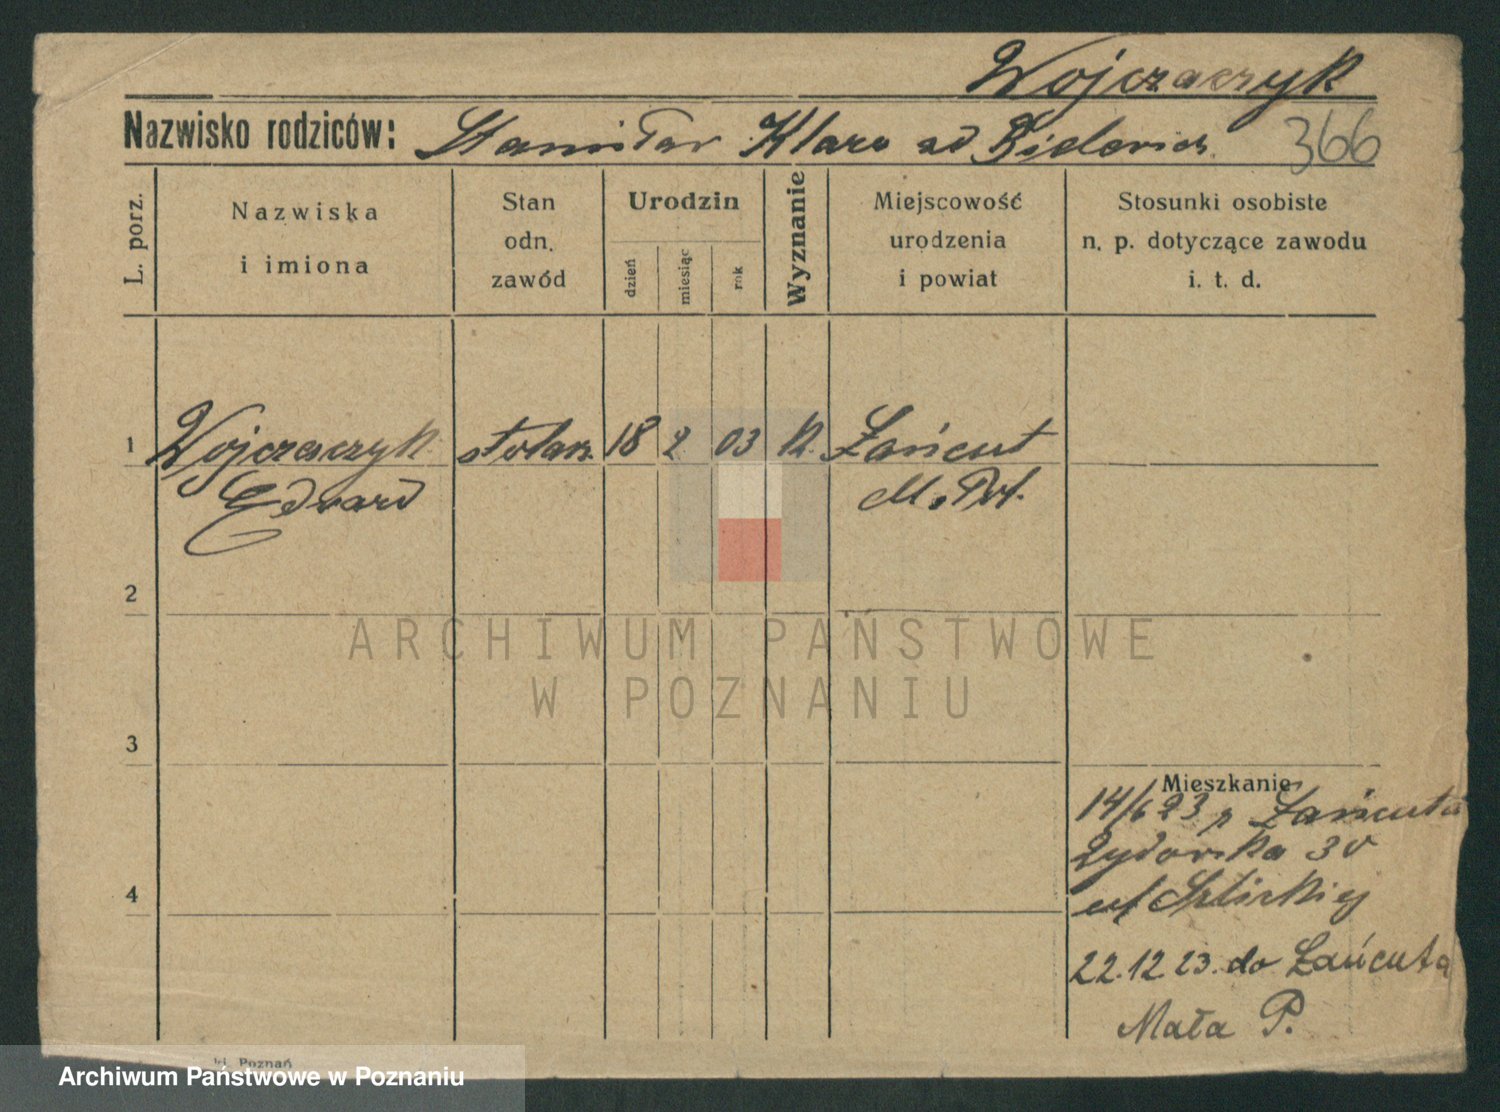 Wojczaczyk
Nazwisko rodziców: Stanisław Klara zd 366
L. porz.
Nazwiska
i imiona
Stan
odn.
zawód
Urodzin
dzień
miesiąc
rok
Wyznanie
Miejscowość
urodzenia
i powiat
Stosunki osobiste
n. p. dotyczące zawodu
i. t. d.
1 Wojczaczyk stolarz 18 2 03 K. Łańcut
Edward M. Pol.
2
ARCHIWUM PAŃSTWOWE
W POZNANIU
3
Mieszkanie
14/6 23 z Łańcuta
30
4
22.12 23. do Łańcuta
Mała P.
Poznań
Archiwum Państwowe w Poznaniu